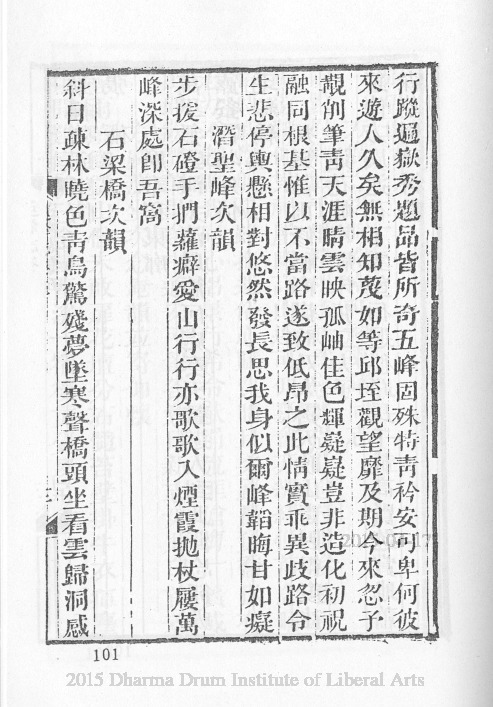 行蹤遍嶽秀題品皆所奇五峰固殊特靑衿安可卑何彼
來遊人久矣無相知茂如等邱垤觀望靡及期今來忽予
覩削筆靑天涯晴雲映孤岫佳色輝嶷嶷豈非造化初視
融同根基惟以不當路遂致低昂之此情實乖異歧路令
生悲停輿懸相對悠然發長思我身似爾峰韜晦甘如癡
潛聖峰次韻
步援石磴手捫蘿癖愛山行行亦歌歌入煙霞抛杖屨萬
峰深處卽吾窩
石梁橋次韻
斜日疎林曉色靑鳥驚殘夢墜寒聲橋頭坐看雲歸洞感
101
2015 Dharma Drum Institute of Liberal Arts